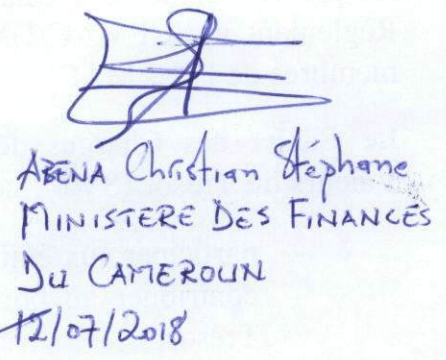 ABENA Christian Stéphane
MINISTERE DES FINANCES
DU CAMEROUN
12/07/2018